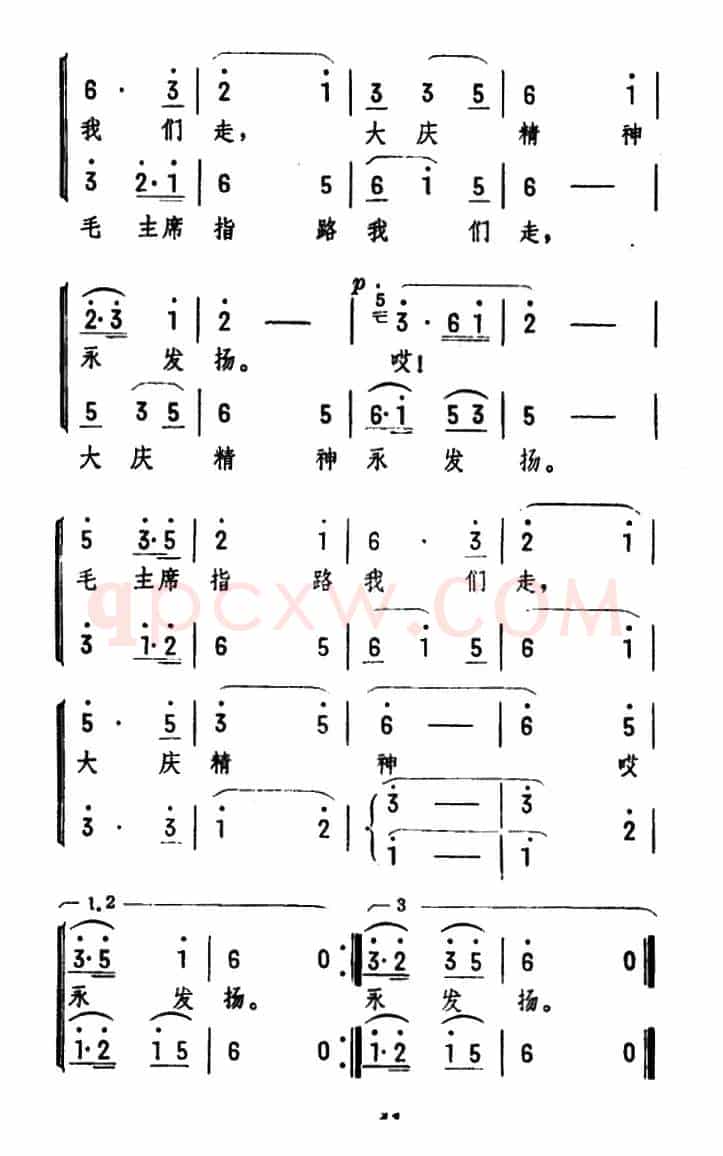 6 · 3 | 2 1 | 3 3 5 | 6 1 |
我 们 走， 大 庆 精 神
3 2·1 | 6 5 | 6 1 5 | 6 — |
毛 主席 指 路 我 们 走，
p
2·3 1 | 2 — | 5 3 · 6 1 | 2 — |
永 发 扬。 哎！
5 3 5 | 6 5 | 6·1 5 3 | 5 — |
大 庆 精 神 永 发 扬。
5 3·5 | 2 1 | 6 · 3 | 2 1 |
毛 主席 指 路 我 们 走，
qpcxw.COM
3 1·2 | 6 5 | 6 1 5 | 6 1 |
5 · 5 | 3 5 | 6 — | 6 5 |
大 庆 精 神 哎
3 · 3 | 1 2 | 3 — | 3 2 |
1 — | 1
1.2 3
3·5 1 | 6 0 :‖: 3·2 3 5 | 6 0 ‖
永 发 扬。 永 发 扬。
1·2 1 5 | 6 0 :‖: 1·2 1 5 | 6 0 ‖